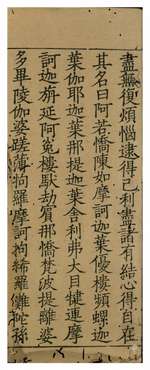 盡無復煩惱逮得己利盡諸有結心得自在
其名曰阿若憍陳如摩訶迦葉優樓頻螺迦
葉伽耶迦葉那提迦葉舍利弗大目犍連摩
訶迦旃延阿㝹樓馱劫賓那憍梵波提離婆
多畢陵伽婆蹉薄拘羅摩訶拘絺羅難陀孫